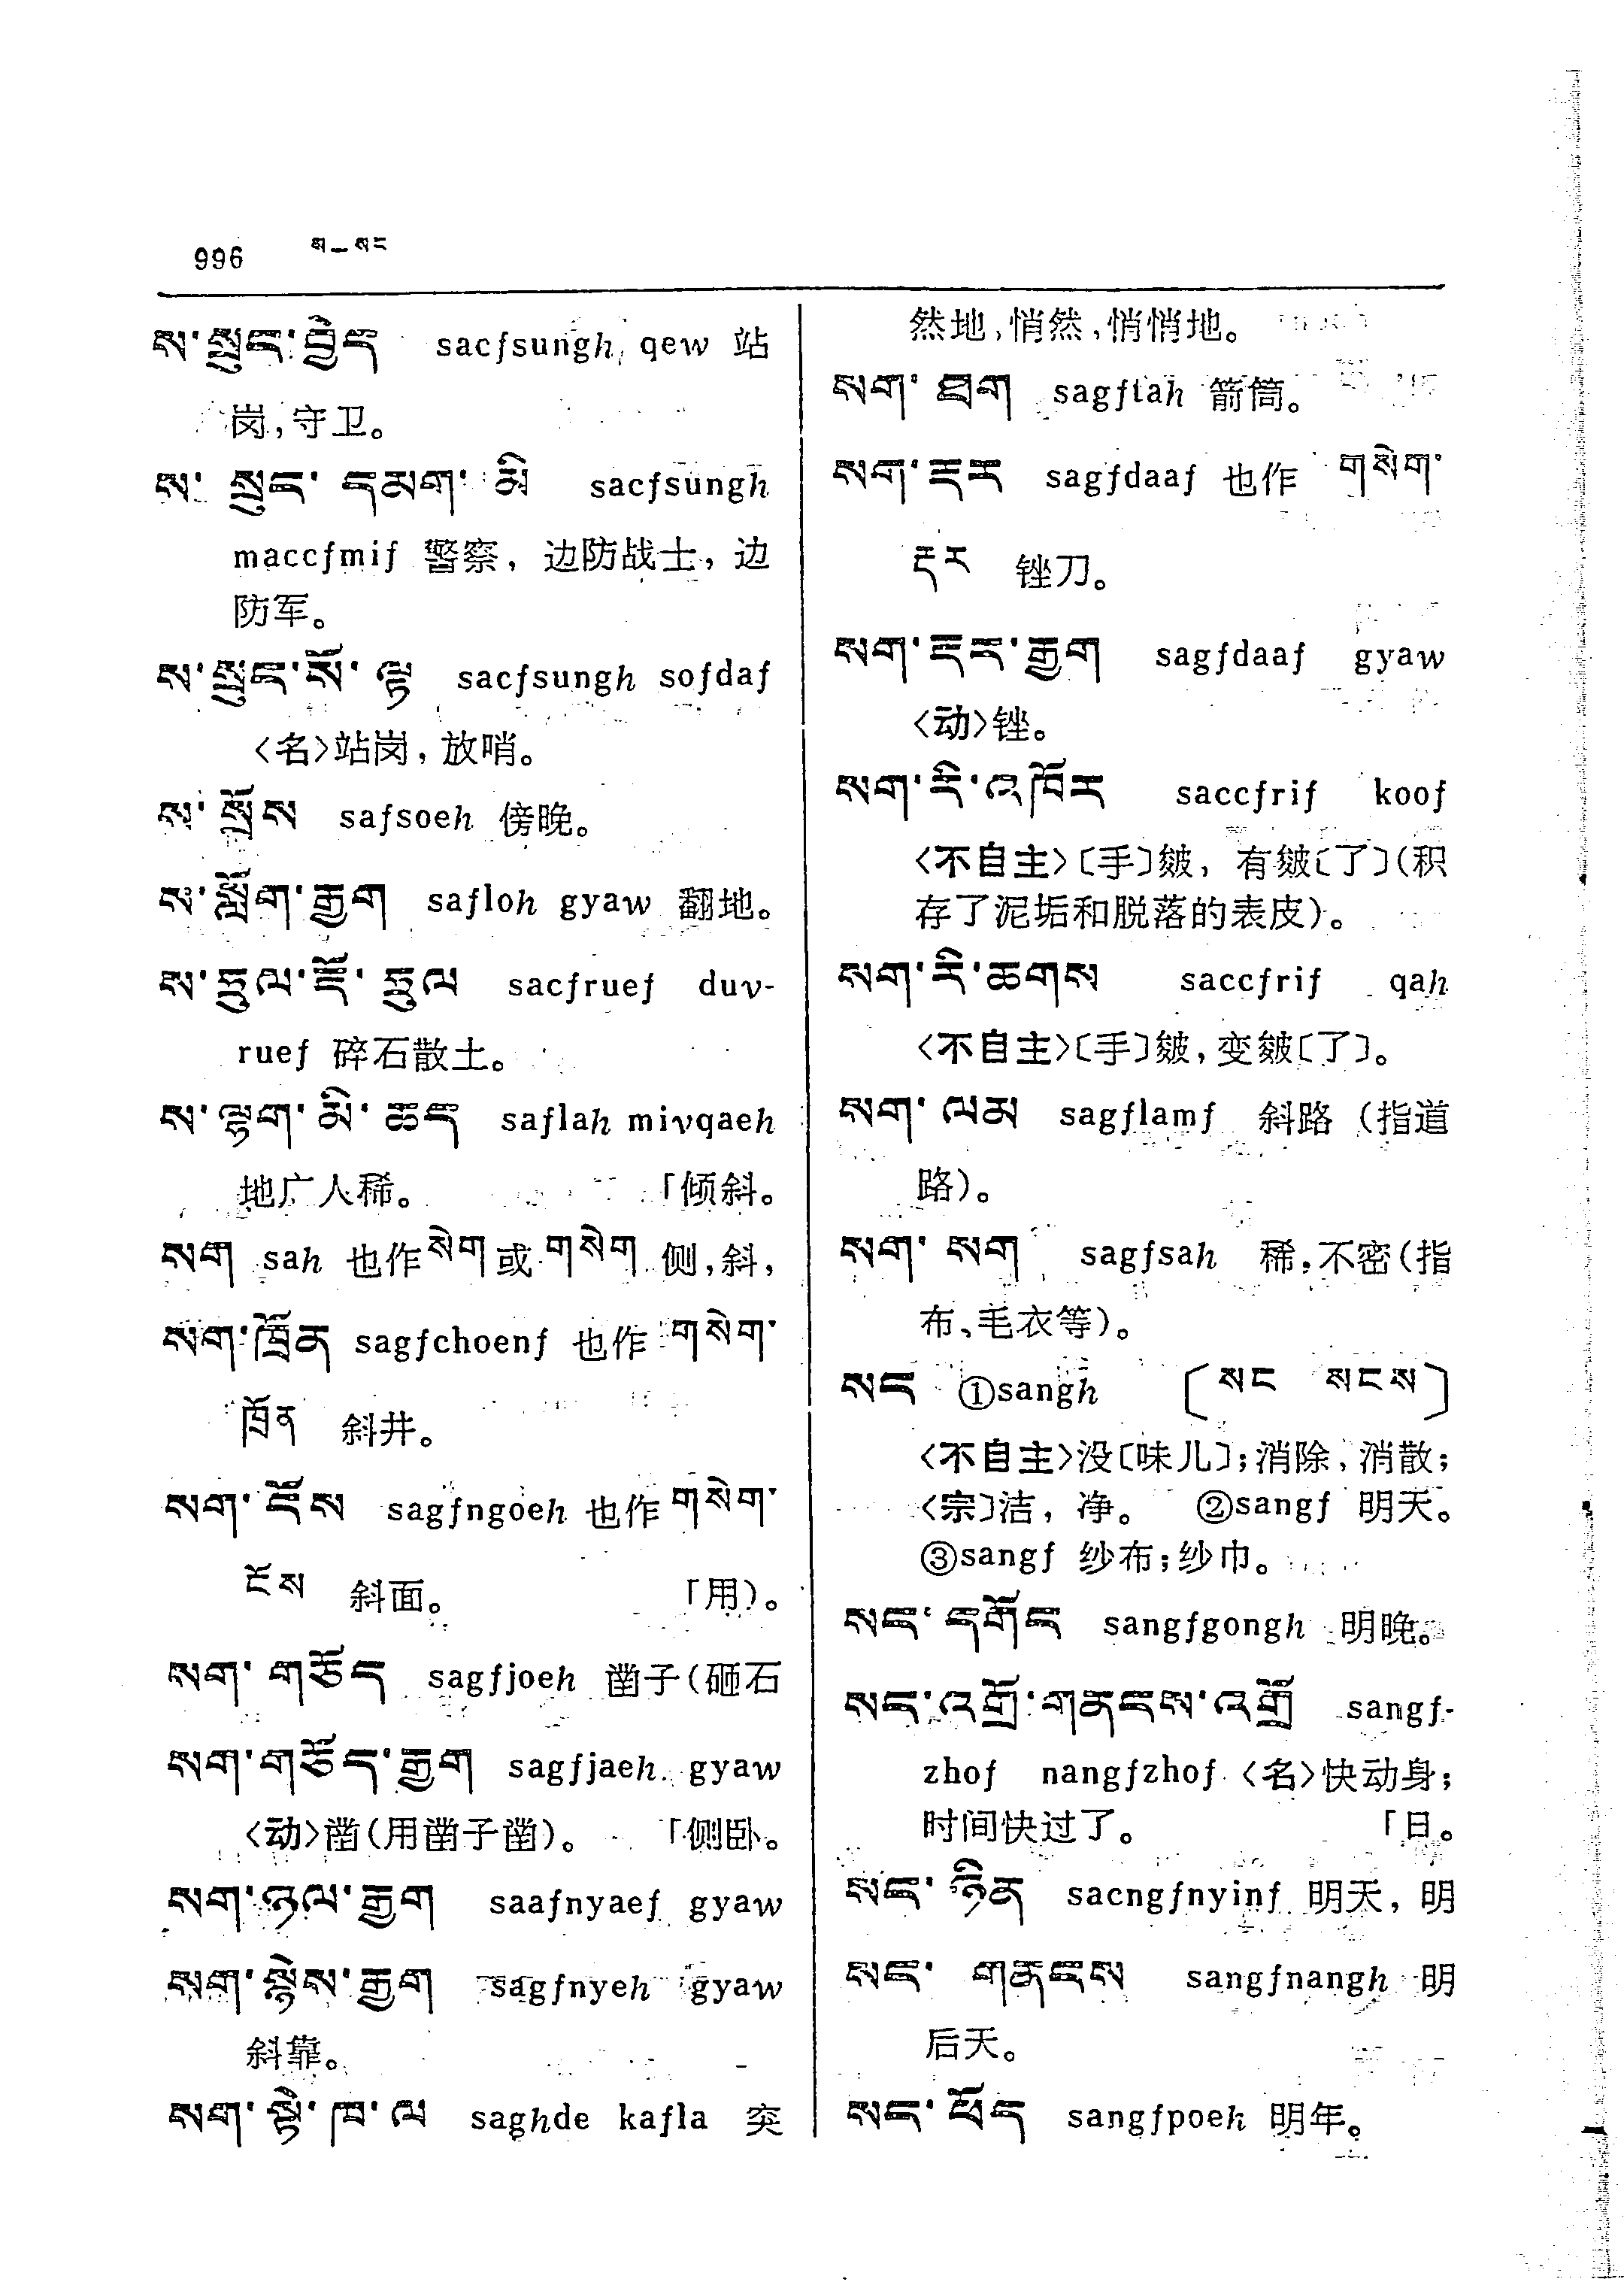 996 ས_སང
ས་སྲུང་བྱེད sacfsungh qew 站
岗,守卫。
ས་ སྲུང་ དམག་ མི sacfsungh
maccfmif 警察, 边防战士, 边
防军。
ས་སྲུང་སོ་ལྟ sacfsungh sofdaf
〈名〉站岗, 放哨。
ས་སྲོས safsoeh 傍晚。
ས་སློག་རྒྱག safloh gyaw 翻地。
ས་རུལ་རྡོ་རུལ sacfruef duv-
ruef 碎石散土。
ས་ལྷག་མི་ཆད saflah mivqaeh
地广人稀。 「倾斜。
སག sah 也作སེག或གསེག 侧,斜,
སག་ཁྲོན sagfchoenf 也作 གསེག་
ཁྲོན 斜井。
སག་ངོས sagfngoeh 也作གསེག་
ངོས 斜面。 「用)。
སག་གཙོད sagfjoeh 凿子(砸石
སག་གཙོད་རྒྱག sagfjaeh gyaw
〈动〉凿(用凿子凿)。 「侧卧。
སག་ཉལ་རྒྱག saafnyaef gyaw
སག་སྙེས་རྒྱག sagfnyeh gyaw
斜靠。
སག་སྟེ་ཁ་ལ saghde kafla 突
然地,悄然,悄悄地。
སག་ཐག sagftah 箭筒。
སག་རྡར sagfdaaf 也作 གསེག་
རྡར 锉刀。
སག་རྡར་རྒྱག sagfdaaf gyaw
〈动〉锉。
སག་རི་འཁོར saccfrif koof
〈不自主〉〔手〕皴, 有皴〔了〕(积
存了泥垢和脱落的表皮)。
སག་རི་ཆགས saccfrif qah
〈不自主〉〔手〕皴, 变皴〔了〕。
སག་ལམ sagflamf 斜路 (指道
路)。
སག་སག sagfsah 稀,不密(指
布、毛衣等)。
སང ①sangh 〔སང སངས〕
〈不自主〉没〔味儿〕;消除, 消散;
〈宗〕洁, 净。 ②sangf 明天。
③sangf 纱布;纱巾。
སང་དགོང sangfgongh 明晚。
སང་འགྲོ་གནངས་འགྲོ sangf-
zhof nangfzhof 〈名〉快动身;
时间快过了。 「日。
སང་ཉིན sacngfnyinf 明天, 明
སང་གནངས sangfnangh 明
后天。
སང་ཕོད sangfpoeh 明年。